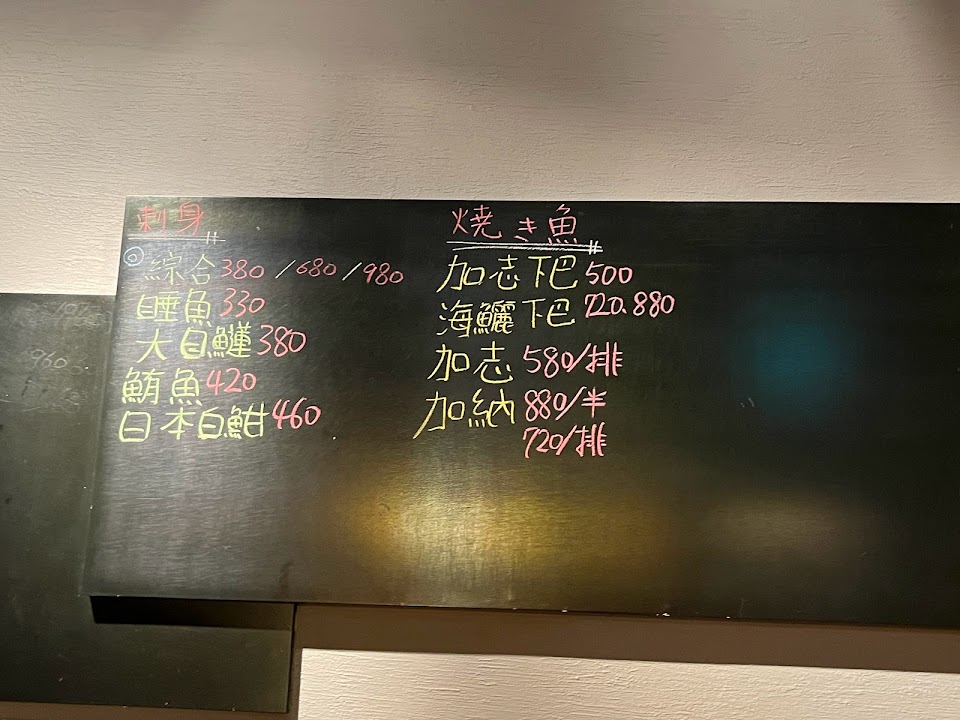 刺身
◎綜合380/680/980
目垂魚330
大目鰱380
鮪魚420
日本白魽460
焼き魚
加志下巴500
海鱺下巴720.880
加志580/排
加納880/半
720/排
960